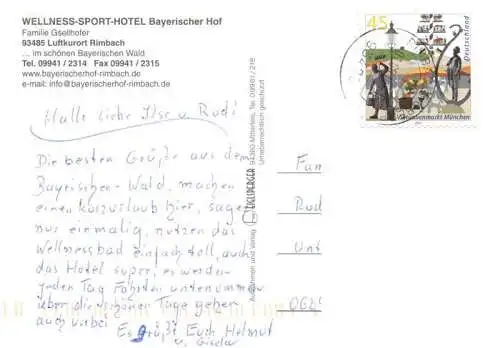 WELLNESS-SPORT-HOTEL Bayerischer Hof
Familie Gsellhofer
93485 Luftkurort Rimbach
... im schönen Bayerischen Wald
Tel. 09941 / 2314 Fax 09941 / 2315
www.bayerischerhof-rimbach.de
e-mail: info@bayerischerhof-rimbach.de
Hallo liebe Ilse u. Rudi
Die besten Grüße aus dem
Bayrischen Wald, machen
einen Kurzurlaub hier, sagen
nur einmalig, nutzen das
Wellnessbad einfach toll, auch
das Hotel super, es werden
jeden Tag Fahrten unternommen
über die schönen Tage gehen
auch vorbei
Es grüßt Euch Helmut
u. Gisela
Aufnahmen und Verlag
94360 Mitterfels, Tel. 09961 / 218
Urheberrechtlich geschützt
45
Deutschland
Viktualienmarkt München
Fam
Rud
Unt